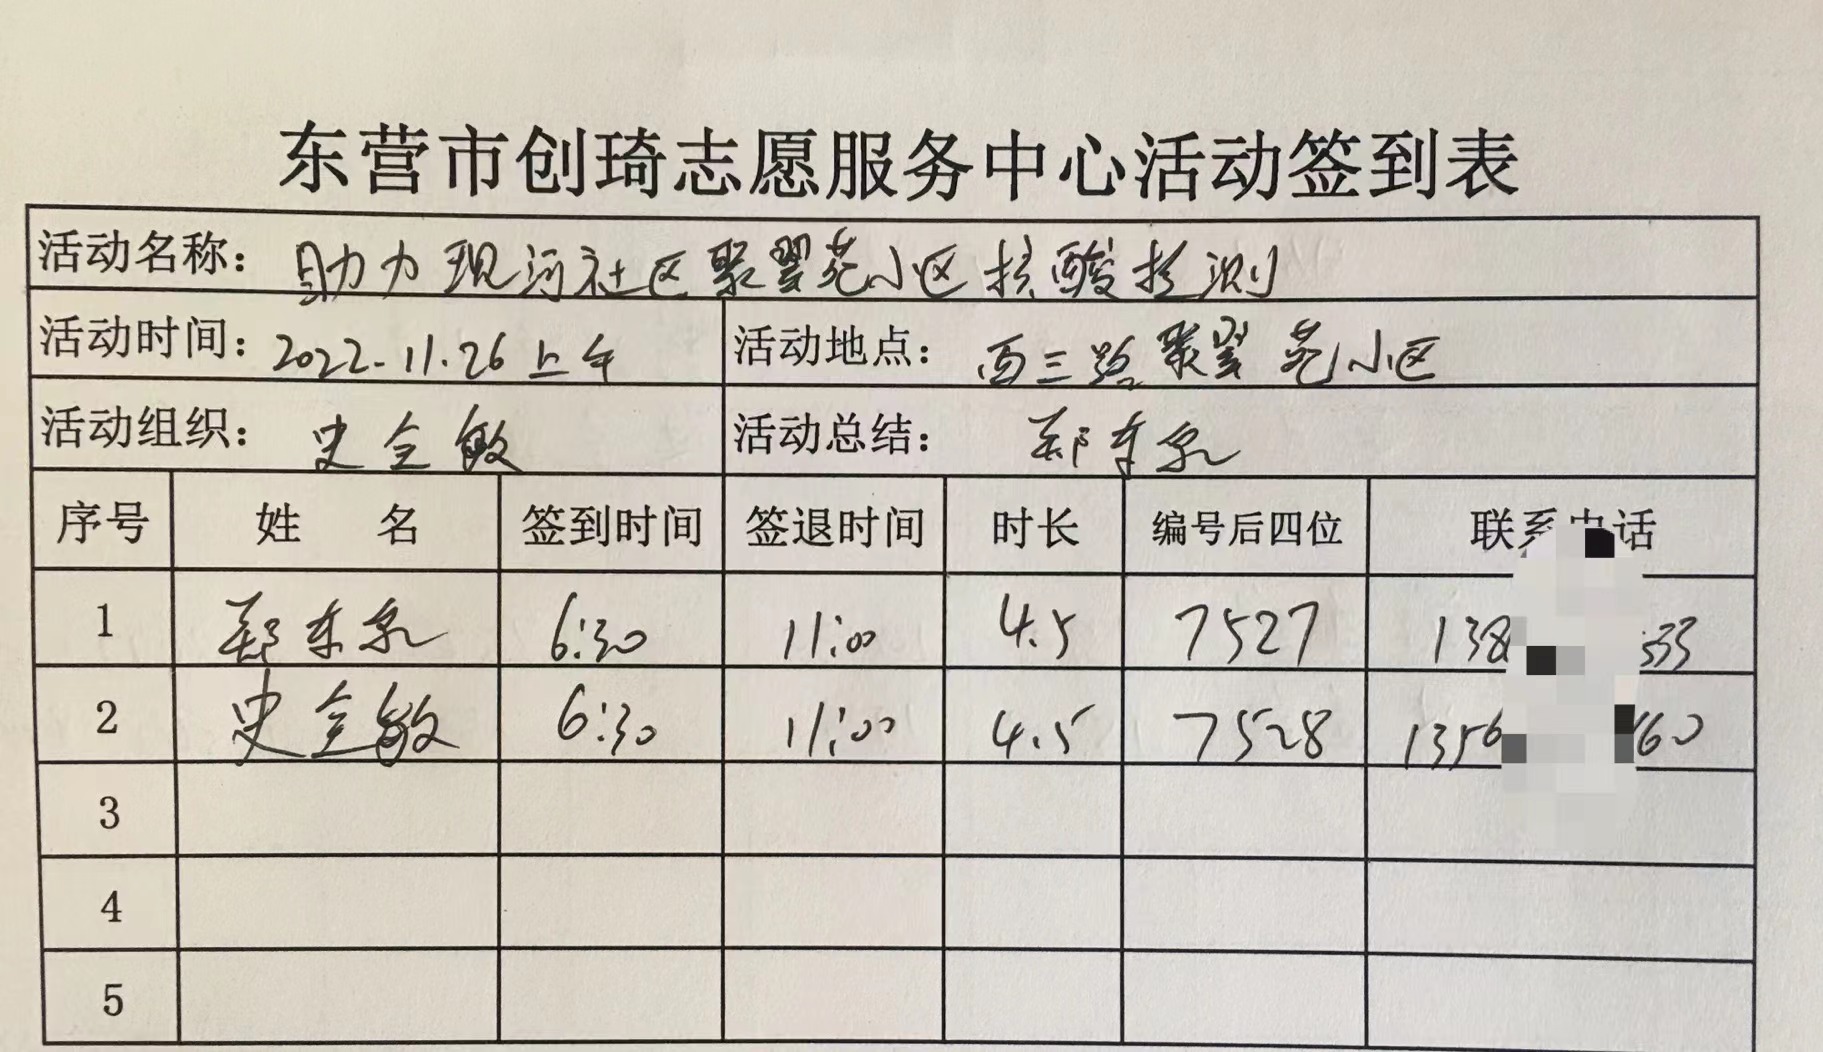 东营市创琦志愿服务中心活动签到表
活动名称：助力现河社区聚翠苑小区核酸检测
活动时间：2022.11.26上午 活动地点：西三路聚翠苑小区
活动组织：史全敏 活动总结：郑东泉
序号 姓名 签到时间 签退时间 时长 编号后四位 联系电话
1 郑东泉 6:30 11:00 4.5 7527 138 533
2 史全敏 6:30 11:00 4.5 7528 1356 160
3
4
5